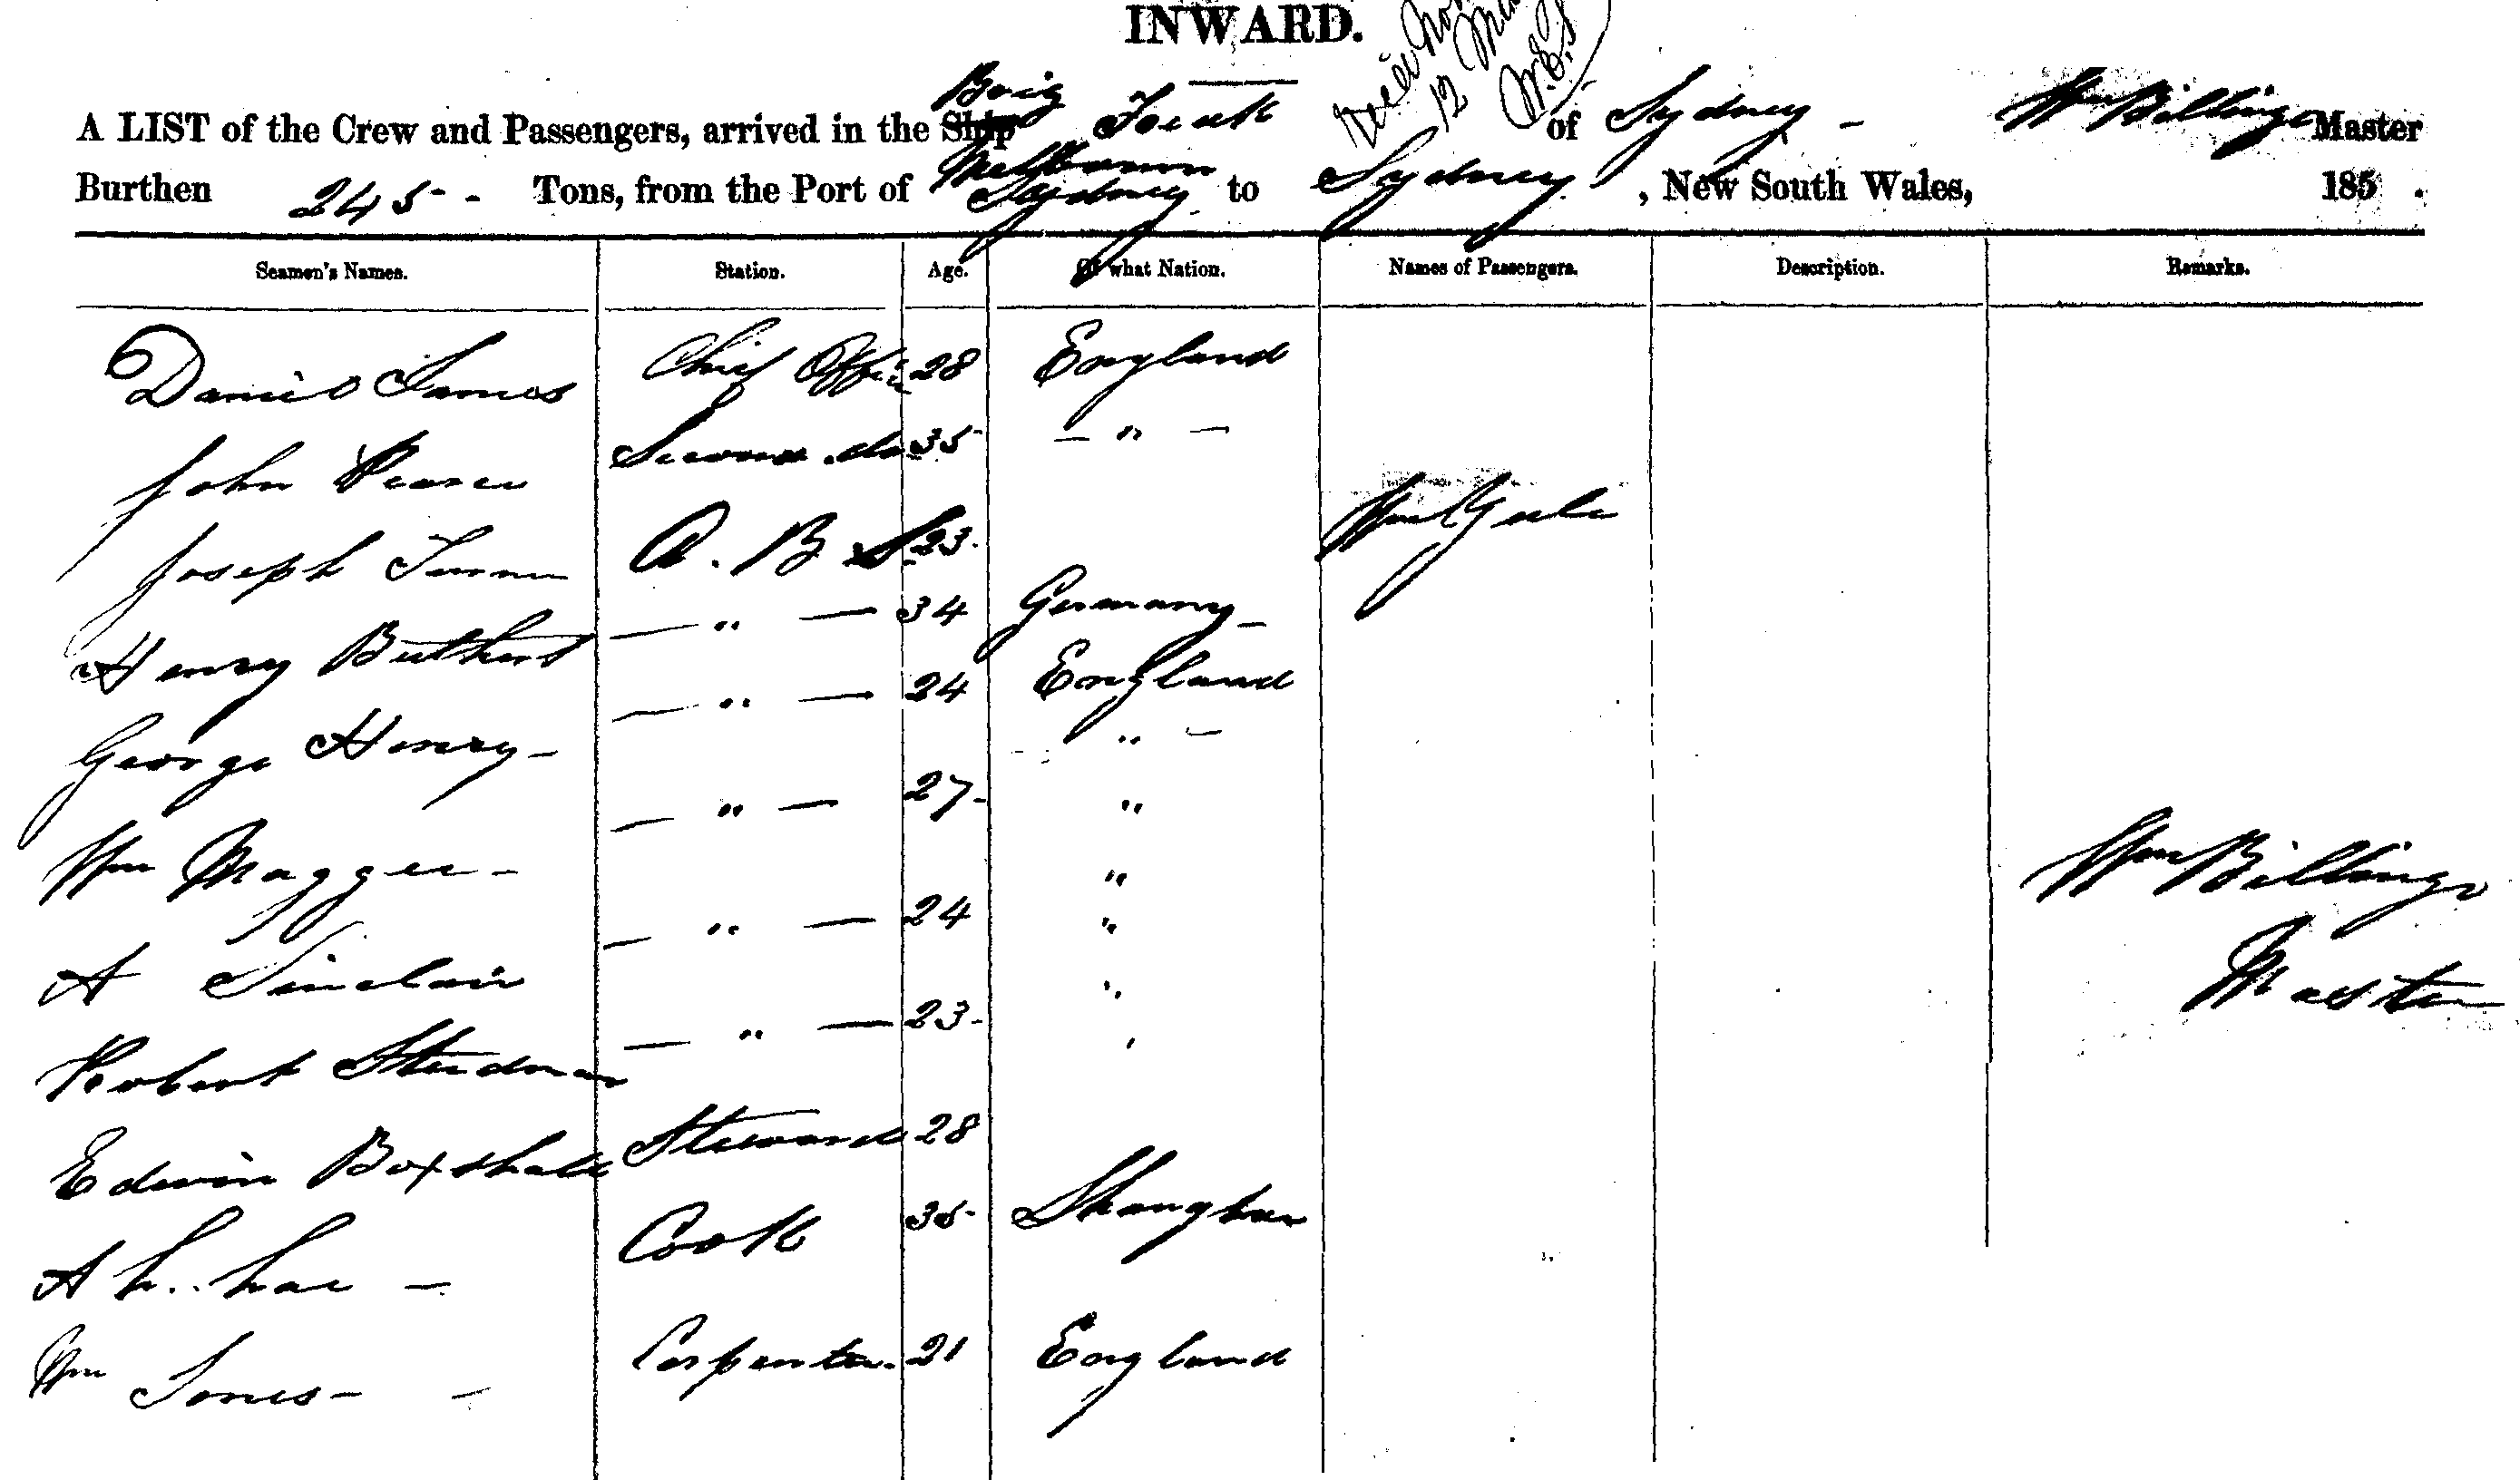 INWARD.
A LIST of the Crew and Passengers, arrived in the Ship Brig of Sydney - Wm Billings Master
Burthen 245 - Tons, from the Port of Melbourne Sydney to Sydney, New South Wales, 185 .
Seamen's Names. Station. Age. Of what Nation. Names of Passengers. Description. Remarks.
Daniel James Chief Offic 28 England
John Pearce Second do 35 - " -
Joseph A. B S. 23
Wm Gale
Henry - " - 34 Germany -
George Henry - - " - 24 England
" -
Wm Maggee - - " - 27 - "
"
A Sinclair - " - 24 "
Robert Steadman - " - 23 - "
Edwin Boxshall Steward 28
Ah.. hae - Cook 35 - Shanghae
Wm Jones - - Carpenter. 21 England
Wm Billings
Master